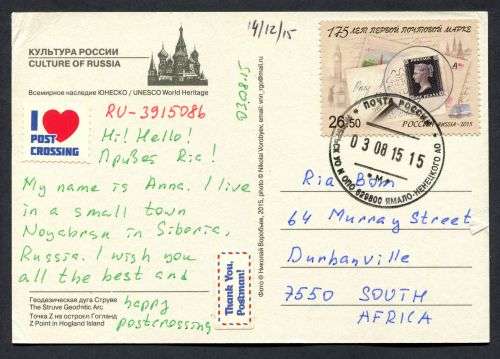 КУЛЬТУРА РОССИИ
CULTURE OF RUSSIA
Всемирное наследие ЮНЕСКО / UNESCO World Heritage
I ❤
POST
CROSSING
RU-3915086
Hi! Hello!
Привет Ria!
My name is Anna. I live
in a small town
Noyabrsk in Siberia,
Russia. I wish you
all the best and
happy
postcrossing
Геодезическая дуга Струве
The Struve Geodetic Arc
Точка Z на острове Гогланд
Z Point in Hogland Island
03.08.15
14/12/15
Фото © Николай Воробьев, 2015, photo © Nikolai Vorobyev, email:
Thank You,
Postman!
175 ЛЕТ ПЕРВОЙ ПОЧТОВОЙ МАРКЕ
26-50
РОССИЯ RUSSIA·2015
ПОЧТА РОССИИ
03 08 15 15
629800 ЯМАЛО-НЕНЕЦКОГО АО
Ria Bum
64 Murray Street
Durbanville
7550 SOUTH
AFRICA